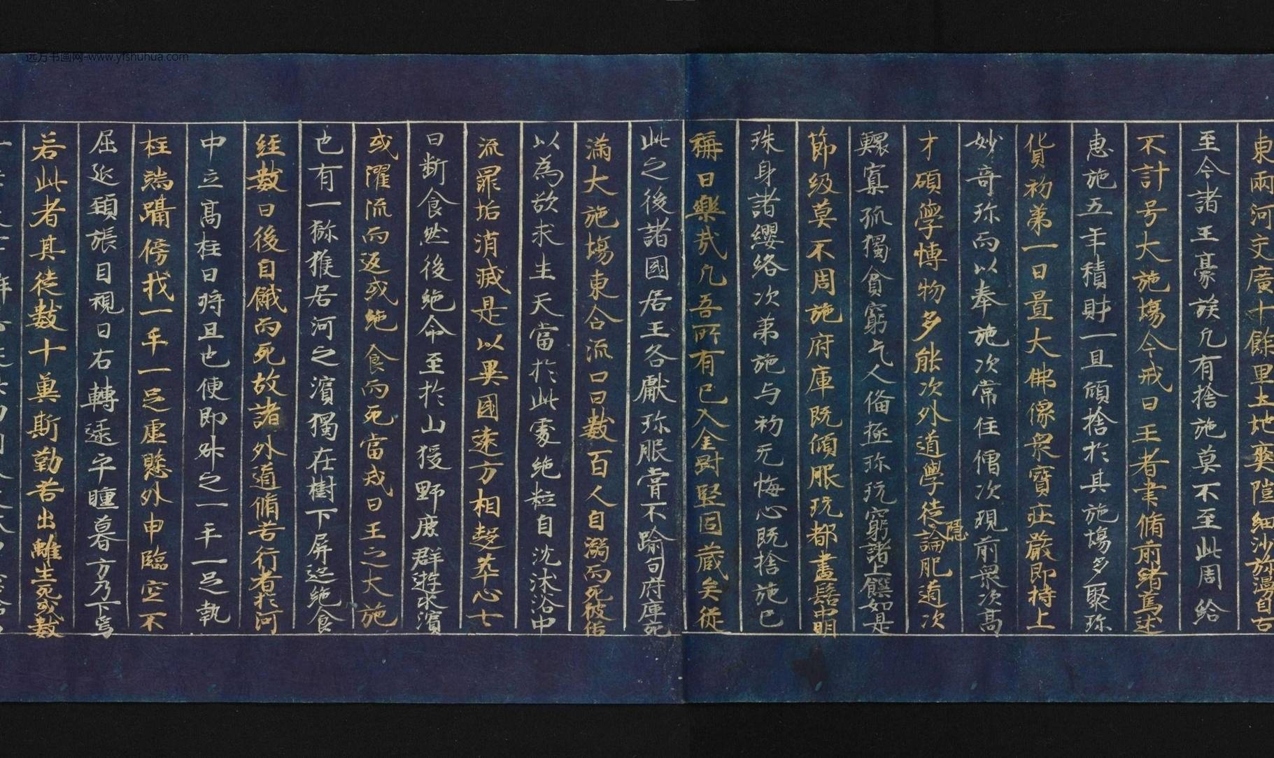 東兩河交廣十餘里土地爽隑細沙弥漫自古
至今諸王豪族凡有捨施莫不至此周給
不計号大施場今戒日王者聿脩前緒篤述
惠施五年積財一旦傾捨於其施場多聚珎
貨初第一日置大佛像衆寶莊嚴即持上
妙奇珎而以奉施次常住僧次現前衆次高
才碩學愽物多能次外道學徒隱論肥道次
鰥寡孤獨貧窮乞人俻極珎玩窮諸上饌如是
節級莫不周施府庫既傾服玩都盡髻中明
珠身諸纓絡次第施与初无悔心既捨施已
稱曰樂哉凡吾所有已入金對堅固藏矣從
此之後諸國居王各獻珎服甞不踰旬府庫宛
滿大施場東合流口日數百人自溺而死彼俗
以為欲求生天當於此處絶粒自沈沐浴中
流罪垢消滅是以異國遠方相趍萃心七
日断食然後絶命至於山猨野庶群遊水濱
或濯流而返或絶食而死當戒日王之大施
也有一獼猴居河之濱獨在樹下屏迹絶食
經數日後自餓而死故諸外道脩苦行者於河
中立高柱日將旦也便即升之一手一足執
柱端躡傍找一手一足虚懸外申臨空不
屈延頚張目視日右轉逮乎曛暮方乃下焉
若此者其徒數十冀斯勤苦出離生死或數